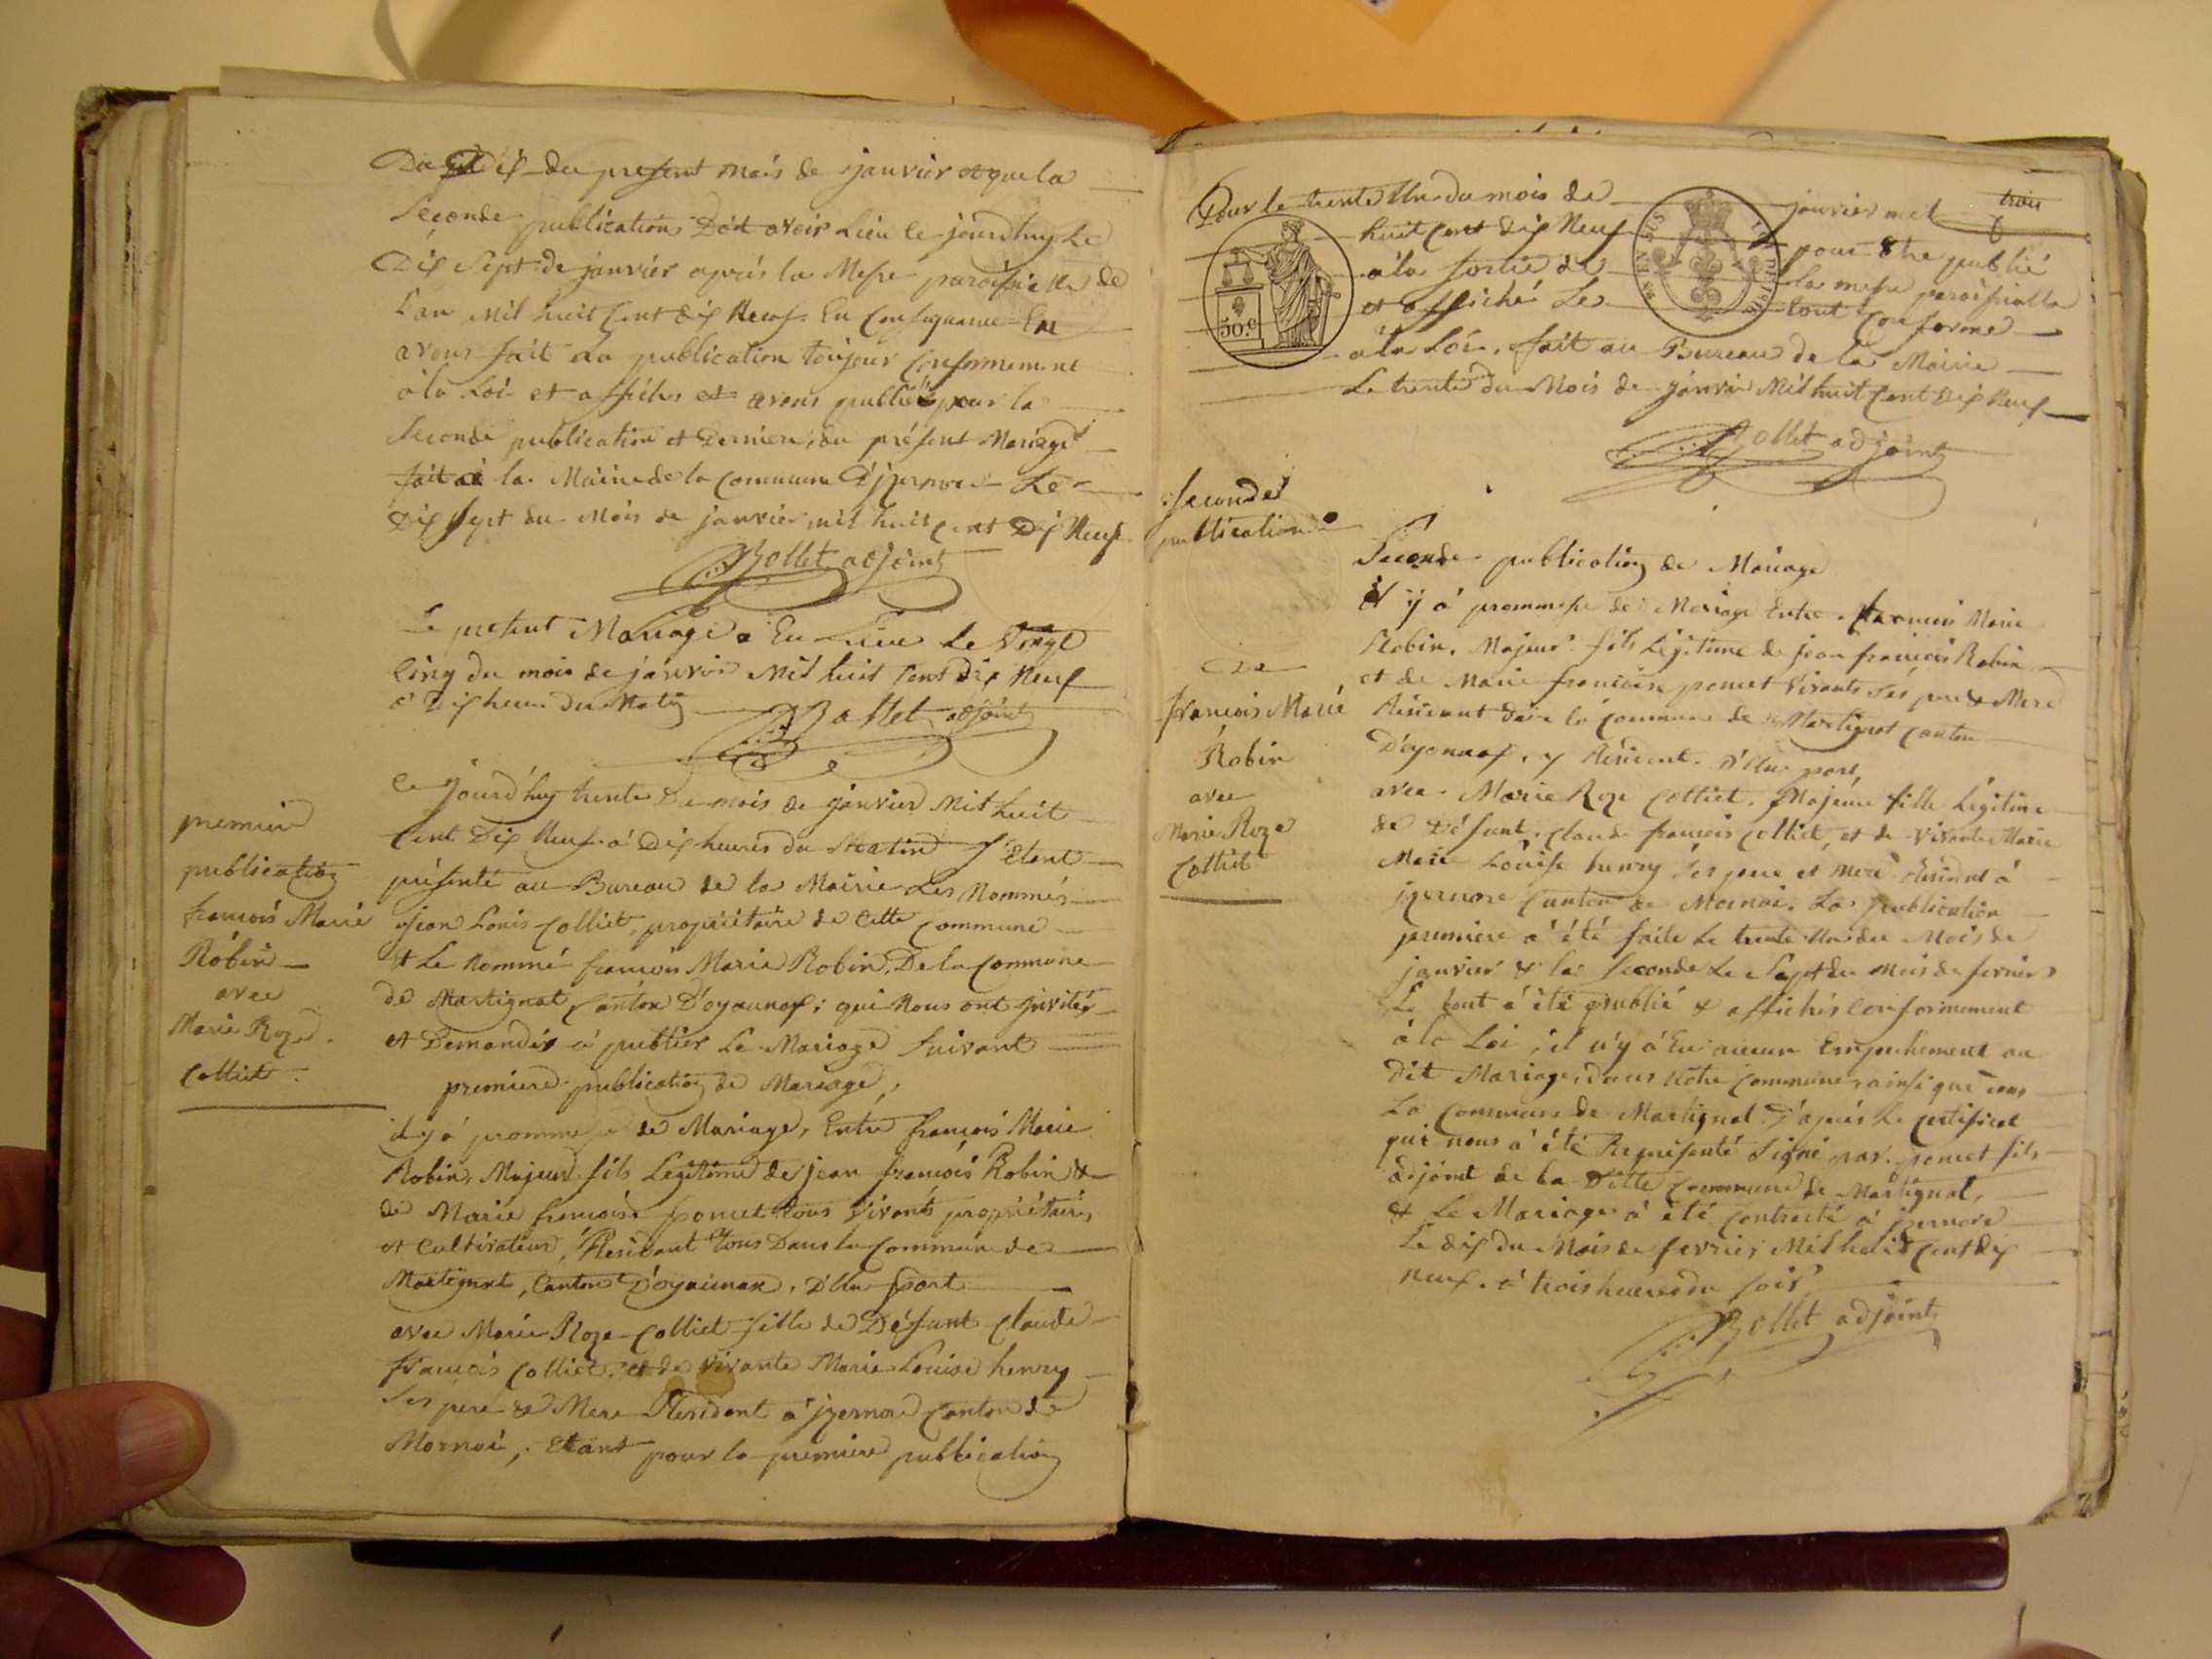 Du Dix du present mois de janvier et que la
Seconde publication Doit avoir Lieu le jourdhuy Le
Dix Sept de janvier après la Messe paroissialle de
L'an Mil huit Cent dix Neuf. En Consequance En
avons fait la publication toujour Conformement
à la Loi et affiches et avons publiée pour la
Seconde publication et Derniere, du présent Mariage
fait à la Mairie de la Commune D'jzernore Le
Dix Sept du Mois de janvier mil huit Cent Dix Neuf
Bollet adjoint
Le present Mariage a Eu Lieu Le Vingt
Cinq du mois de janvier Mil huit Cent dix Neuf
à Dix heures du Matin Bollet adjoint
premiere
publication
françois Marie
Robin
avec
Marie Roze
Colliet.
Ce jourd'huy trente De mois de janvier Mil huit
Cent Dix Neuf à Dix heures du Matin S'Etent
présenté au Bureau de la Mairie Les Nommés
Jean Louis Colliet, propriétaire de Cette Commune
& Le Nommé françois Marie Robin, De la Commune
de Martignat, Canton D'oyonnax; qui Nous ont jnvités
et Demandés à publier Le Mariage Suivant
premiere publication de Mariage,
il y à prommesse de Mariage, Entre françois Marie
Robin, Majeur fils Legitime de jean françois Robin &
de Marie françoise poncet tous Vivants propriétaires
et Cultivateurs, Résidant tous Dans la Commune de
Martignat, Canton D'oyaunax. D'Une part
avec Marie Roze Colliet fille de Défunt Claude
françois Colliet. et de Vivante Marie Louise henry
Ses pere & Mere Résidant à jzernore Canton de
Mornai, Etant pour la premiere publication
trois
Pour le trente Un du mois de janvier mil
huit Cent dix Neuf pour Etre publié
à la Sortie de la messe paroissialle
et affiché Le tout Conforme
à la Loi. fait au Bureau de la Mairie
Le trente du Mois de janvier Mil huit Cent Dix Neuf
50.c
Bollet adjoint
Seconde
publication
de
françois Marie
Robin
avec
Marie Roze
Colliet
Seconde publication de Mariage
il y à prommesse de Mariage Entre francois Marie
Robin, Majeur fils Légitime de jean françois Robin
et de Marie françoise poncet Vivants Ses pere & Mere
Résidant dans la Commune de Martignat Canton
D'oyonnax, y Résident. D'Une part,
avec Marie Roze Colliet, Majeure fille Légitime
de Défunt. Claude françois Colliet, et de Vivante Marie
Marie Loüise henry Ses pere et mere Résident à
jzernore Canton de Mornai. La publication
premiere à été faite Le trente Un du Mois de
janvier & la Seconde Le Sept du mois de fevrier
Le tout à été publié & affichés Conformement
à la Loi, il n'y à Eu aucun Empechement au
dit Mariage, dans Notre Commune, ainsi que dans
La Commune de Martignat D'après Le Certificat
qui nous à été Représenté Signé par. poncet fils
adjoint de La Ditte Commune de Martignat,
& Le Mariage à été Contracté à jzernore
Le dix du Mois de fevrier Mil huit Cent dix
neuf. à trois heures du Soir
Bollet adjoint